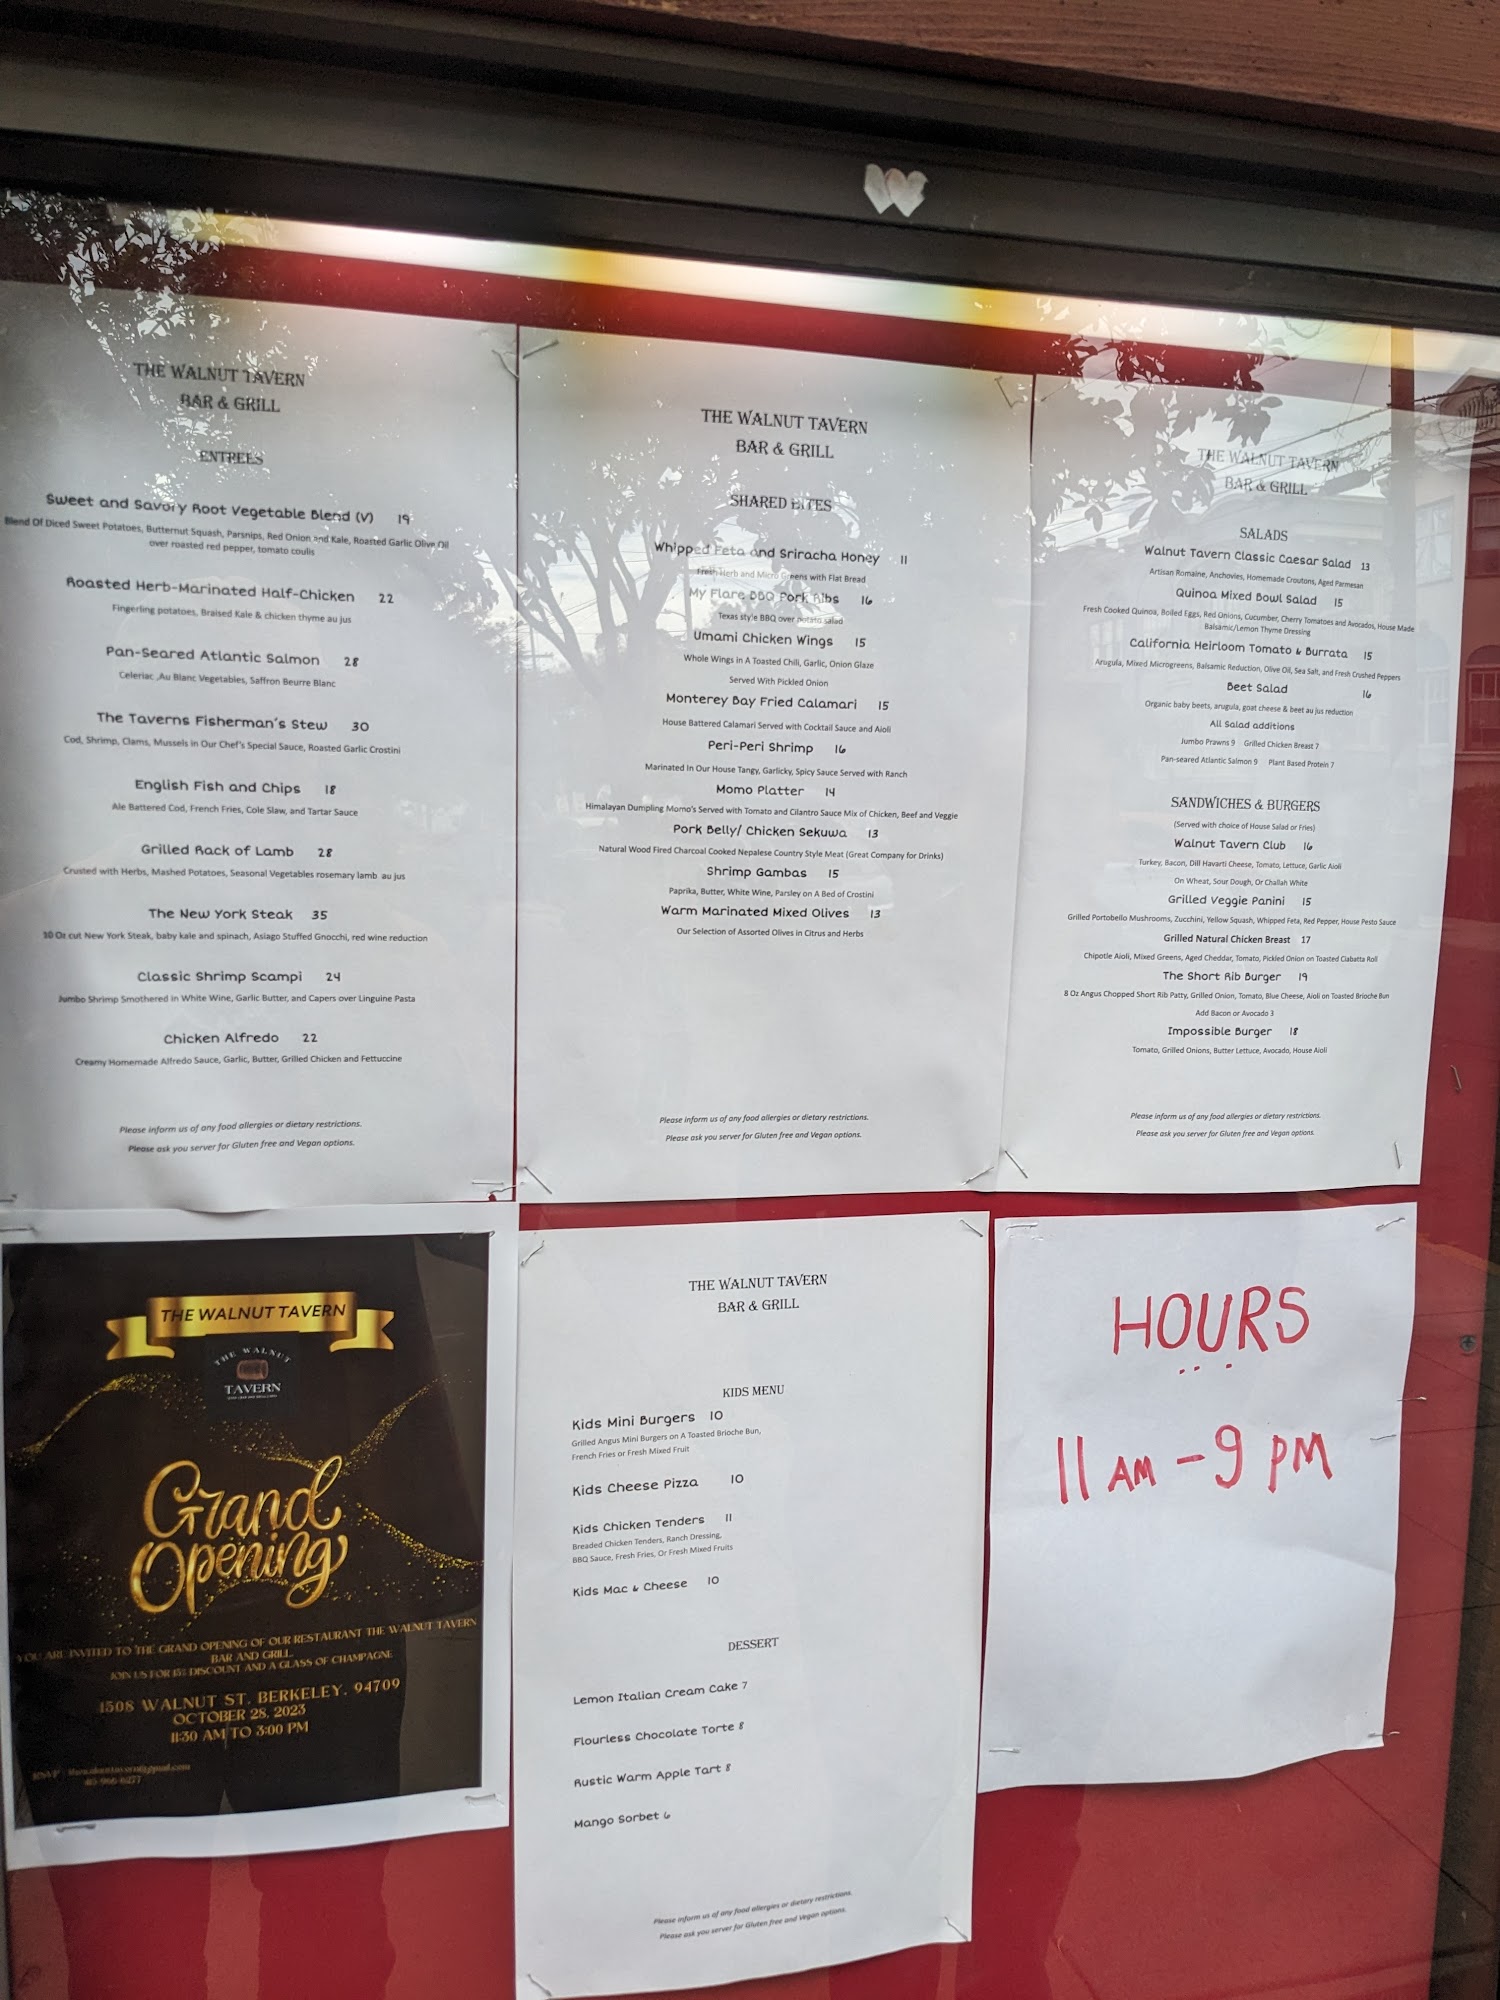 THE WALNUT TAVERN
BAR & GRILL
ENTREES
Sweet and Savory Root Vegetable Blend (V) 19
Blend Of Diced Sweet Potatoes, Butternut Squash, Parsnips, Red Onion and Kale, Roasted Garlic Olive Oil
over roasted red pepper, tomato coulis
Roasted Herb-Marinated Half-Chicken 22
Fingerling potatoes, Braised Kale & chicken thyme au jus
Pan-Seared Atlantic Salmon 28
Celeriac ,Au Blanc Vegetables, Saffron Beurre Blanc
The Taverns Fisherman's Stew 30
Cod, Shrimp, Clams, Mussels in Our Chef's Special Sauce, Roasted Garlic Crostini
English Fish and Chips 18
Ale Battered Cod, French Fries, Cole Slaw, and Tartar Sauce
Grilled Rack of Lamb 28
Crusted with Herbs, Mashed Potatoes, Seasonal Vegetables rosemary lamb au jus
The New York Steak 35
10 Oz cut New York Steak, baby kale and spinach, Asiago Stuffed Gnocchi, red wine reduction
Classic Shrimp Scampi 24
Jumbo Shrimp Smothered in White Wine, Garlic Butter, and Capers over Linguine Pasta
Chicken Alfredo 22
Creamy Homemade Alfredo Sauce, Garlic, Butter, Grilled Chicken and Fettuccine
Please inform us of any food allergies or dietary restrictions.
Please ask you server for Gluten free and Vegan options.
THE WALNUT TAVERN
BAR & GRILL
SHARED BITES
Whipped Feta and Sriracha Honey 11
Fresh Herb and Micro Greens with Flat Bread
My Flare BBQ Pork Ribs 16
Texas style BBQ over potato salad
Umami Chicken Wings 15
Whole Wings in A Toasted Chili, Garlic, Onion Glaze
Served With Pickled Onion
Monterey Bay Fried Calamari 15
House Battered Calamari Served with Cocktail Sauce and Aioli
Peri-Peri Shrimp 16
Marinated In Our House Tangy, Garlicky, Spicy Sauce Served with Ranch
Momo Platter 14
Himalayan Dumpling Momo's Served with Tomato and Cilantro Sauce Mix of Chicken, Beef and Veggie
Pork Belly/ Chicken Sekuwa 13
Natural Wood Fired Charcoal Cooked Nepalese Country Style Meat (Great Company for Drinks)
Shrimp Gambas 15
Paprika, Butter, White Wine, Parsley on A Bed of Crostini
Warm Marinated Mixed Olives 13
Our Selection of Assorted Olives in Citrus and Herbs
Please inform us of any food allergies or dietary restrictions.
Please ask you server for Gluten free and Vegan options.
THE WALNUT TAVERN
BAR & GRILL
SALADS
Walnut Tavern Classic Caesar Salad 13
Artisan Romaine, Anchovies, Homemade Croutons, Aged Parmesan
Quinoa Mixed Bowl Salad 15
Fresh Cooked Quinoa, Boiled Eggs, Red Onions, Cucumber, Cherry Tomatoes and Avocados, House Made
Balsamic/Lemon Thyme Dressing
California Heirloom Tomato & Burrata 15
Arugula, Mixed Microgreens, Balsamic Reduction, Olive Oil, Sea Salt, and Fresh Crushed Peppers
Beet Salad 16
Organic baby beets, arugula, goat cheese & beet au jus reduction
All Salad additions
Jumbo Prawns 9 Grilled Chicken Breast 7
Pan-seared Atlantic Salmon 9 Plant Based Protein 7
SANDWICHES & BURGERS
(Served with choice of House Salad or Fries)
Walnut Tavern Club 16
Turkey, Bacon, Dill Havarti Cheese, Tomato, Lettuce, Garlic Aioli
On Wheat, Sour Dough, Or Challah White
Grilled Veggie Panini 15
Grilled Portobello Mushrooms, Zucchini, Yellow Squash, Whipped Feta, Red Pepper, House Pesto Sauce
Grilled Natural Chicken Breast 17
Chipotle Aioli, Mixed Greens, Aged Cheddar, Tomato, Pickled Onion on Toasted Ciabatta Roll
The Short Rib Burger 19
8 Oz Angus Chopped Short Rib Patty, Grilled Onion, Tomato, Blue Cheese, Aioli on Toasted Brioche Bun
Add Bacon or Avocado 3
Impossible Burger 18
Tomato, Grilled Onions, Butter Lettuce, Avocado, House Aioli
Please inform us of any food allergies or dietary restrictions.
Please ask you server for Gluten free and Vegan options.
THE WALNUT TAVERN
THE WALNUT
TAVERN
Grand
Opening
YOU ARE INVITED TO THE GRAND OPENING OF OUR RESTAURANT THE WALNUT TAVERN
BAR AND GRILL.
JOIN US FOR 15% DISCOUNT AND A GLASS OF CHAMPAGNE
1508 WALNUT ST. BERKELEY. 94709
OCTOBER 28, 2023
11:30 AM TO 3:00 PM
RSVP
THE WALNUT TAVERN
BAR & GRILL
KIDS MENU
Kids Mini Burgers 10
Grilled Angus Mini Burgers on A Toasted Brioche Bun,
French Fries or Fresh Mixed Fruit
Kids Cheese Pizza 10
Kids Chicken Tenders 11
Breaded Chicken Tenders, Ranch Dressing,
BBQ Sauce, Fresh Fries, Or Fresh Mixed Fruits
Kids Mac & Cheese 10
DESSERT
Lemon Italian Cream Cake 7
Flourless Chocolate Torte 8
Rustic Warm Apple Tart 8
Mango Sorbet 6
Please inform us of any food allergies or dietary restrictions.
Please ask you server for Gluten free and Vegan options.
HOURS
11 AM - 9 PM